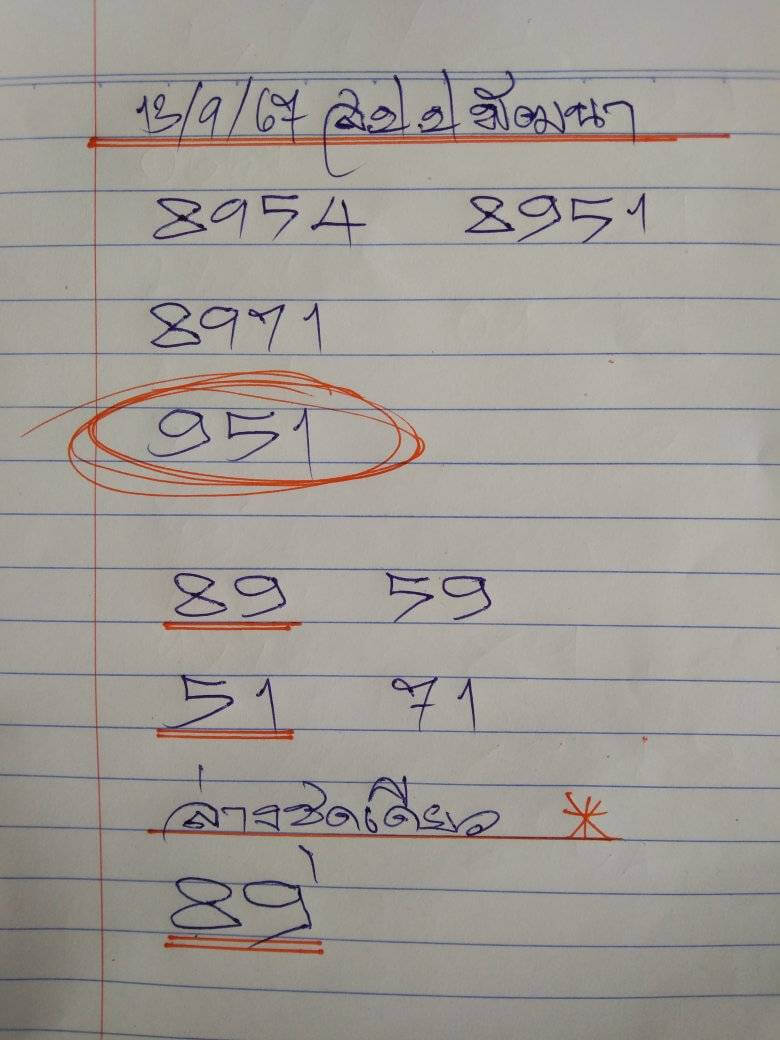 13/9/67 ส.ป.ป พัฒนา
8954 8951
8971
951
89 59
51 71
ล่างชุดเดียว
89